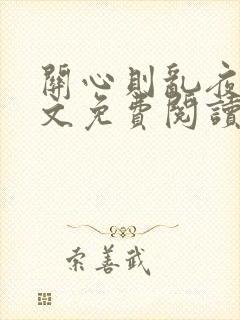 關心則亂夜
文免費閱讀
索善武